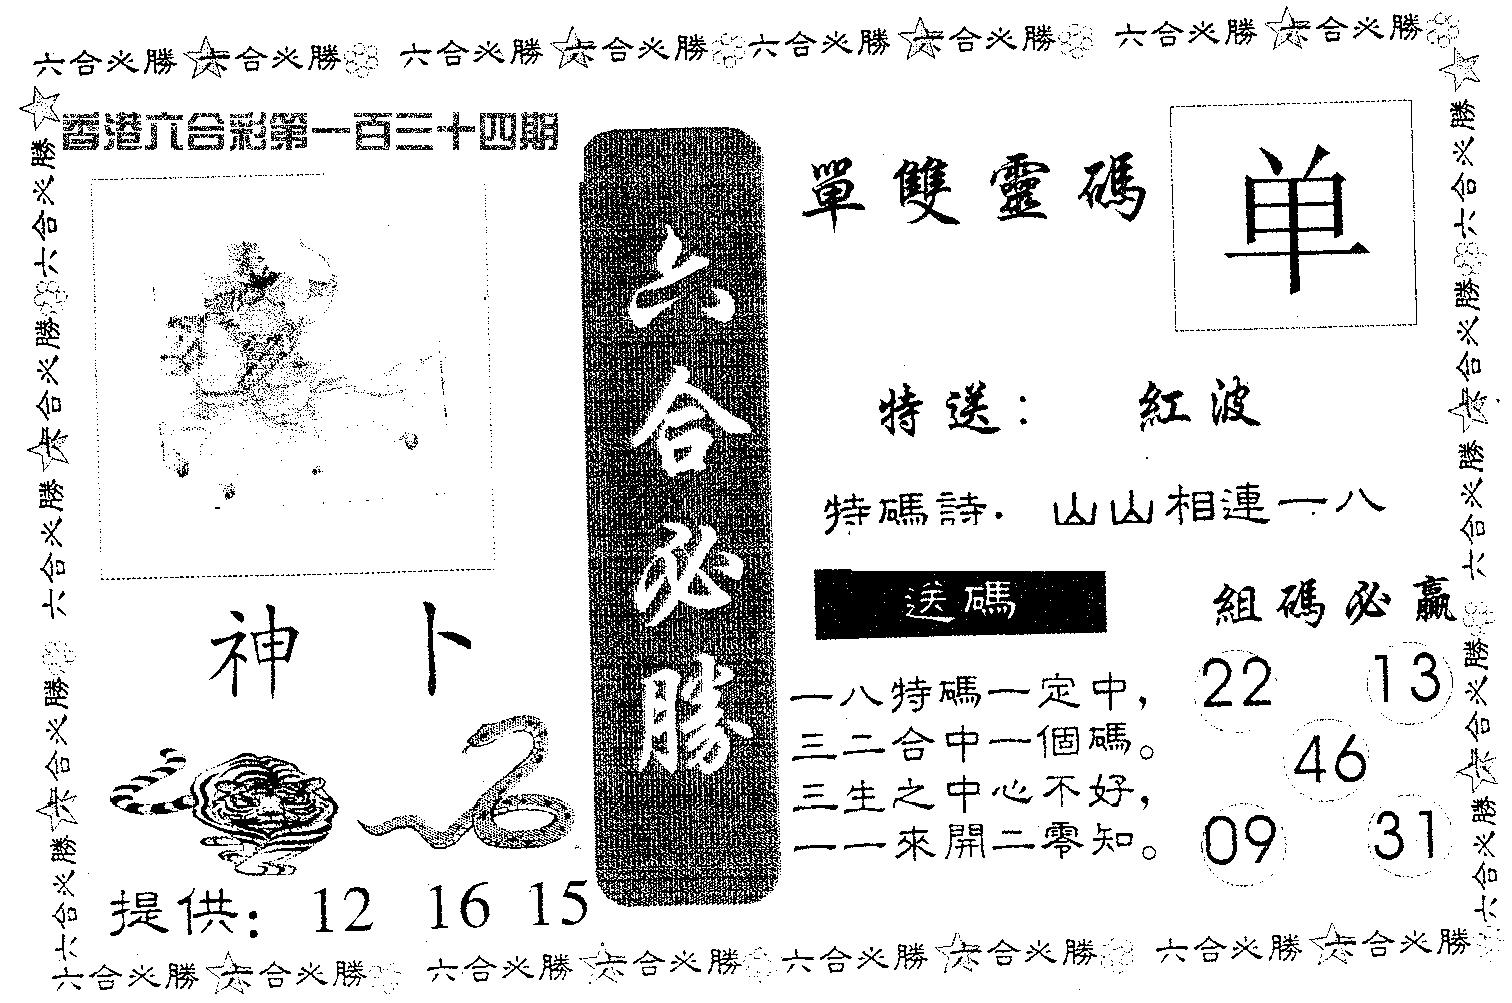 六合必勝 六合必勝 六合必勝 六合必勝 六合必勝 六合必勝 六合必勝 六合必勝
香港六合彩第一百三十四期
六合必勝 六合必勝 六合必勝 六合必勝 六合必勝
神 卜
提供: 12 16 15
六合必勝
單雙靈碼
单
特送: 紅波
特碼詩. 山山相連一八
送碼
一八特碼一定中,
三二合中一個碼。
三生之中心不好,
一一來開二零知。
組碼必贏
22 13
46
09 31
六合必勝 六合必勝 六合必勝 六合必勝 六合必勝
六合必勝 六合必勝 六合必勝 六合必勝 六合必勝 六合必勝 六合必勝 六合必勝